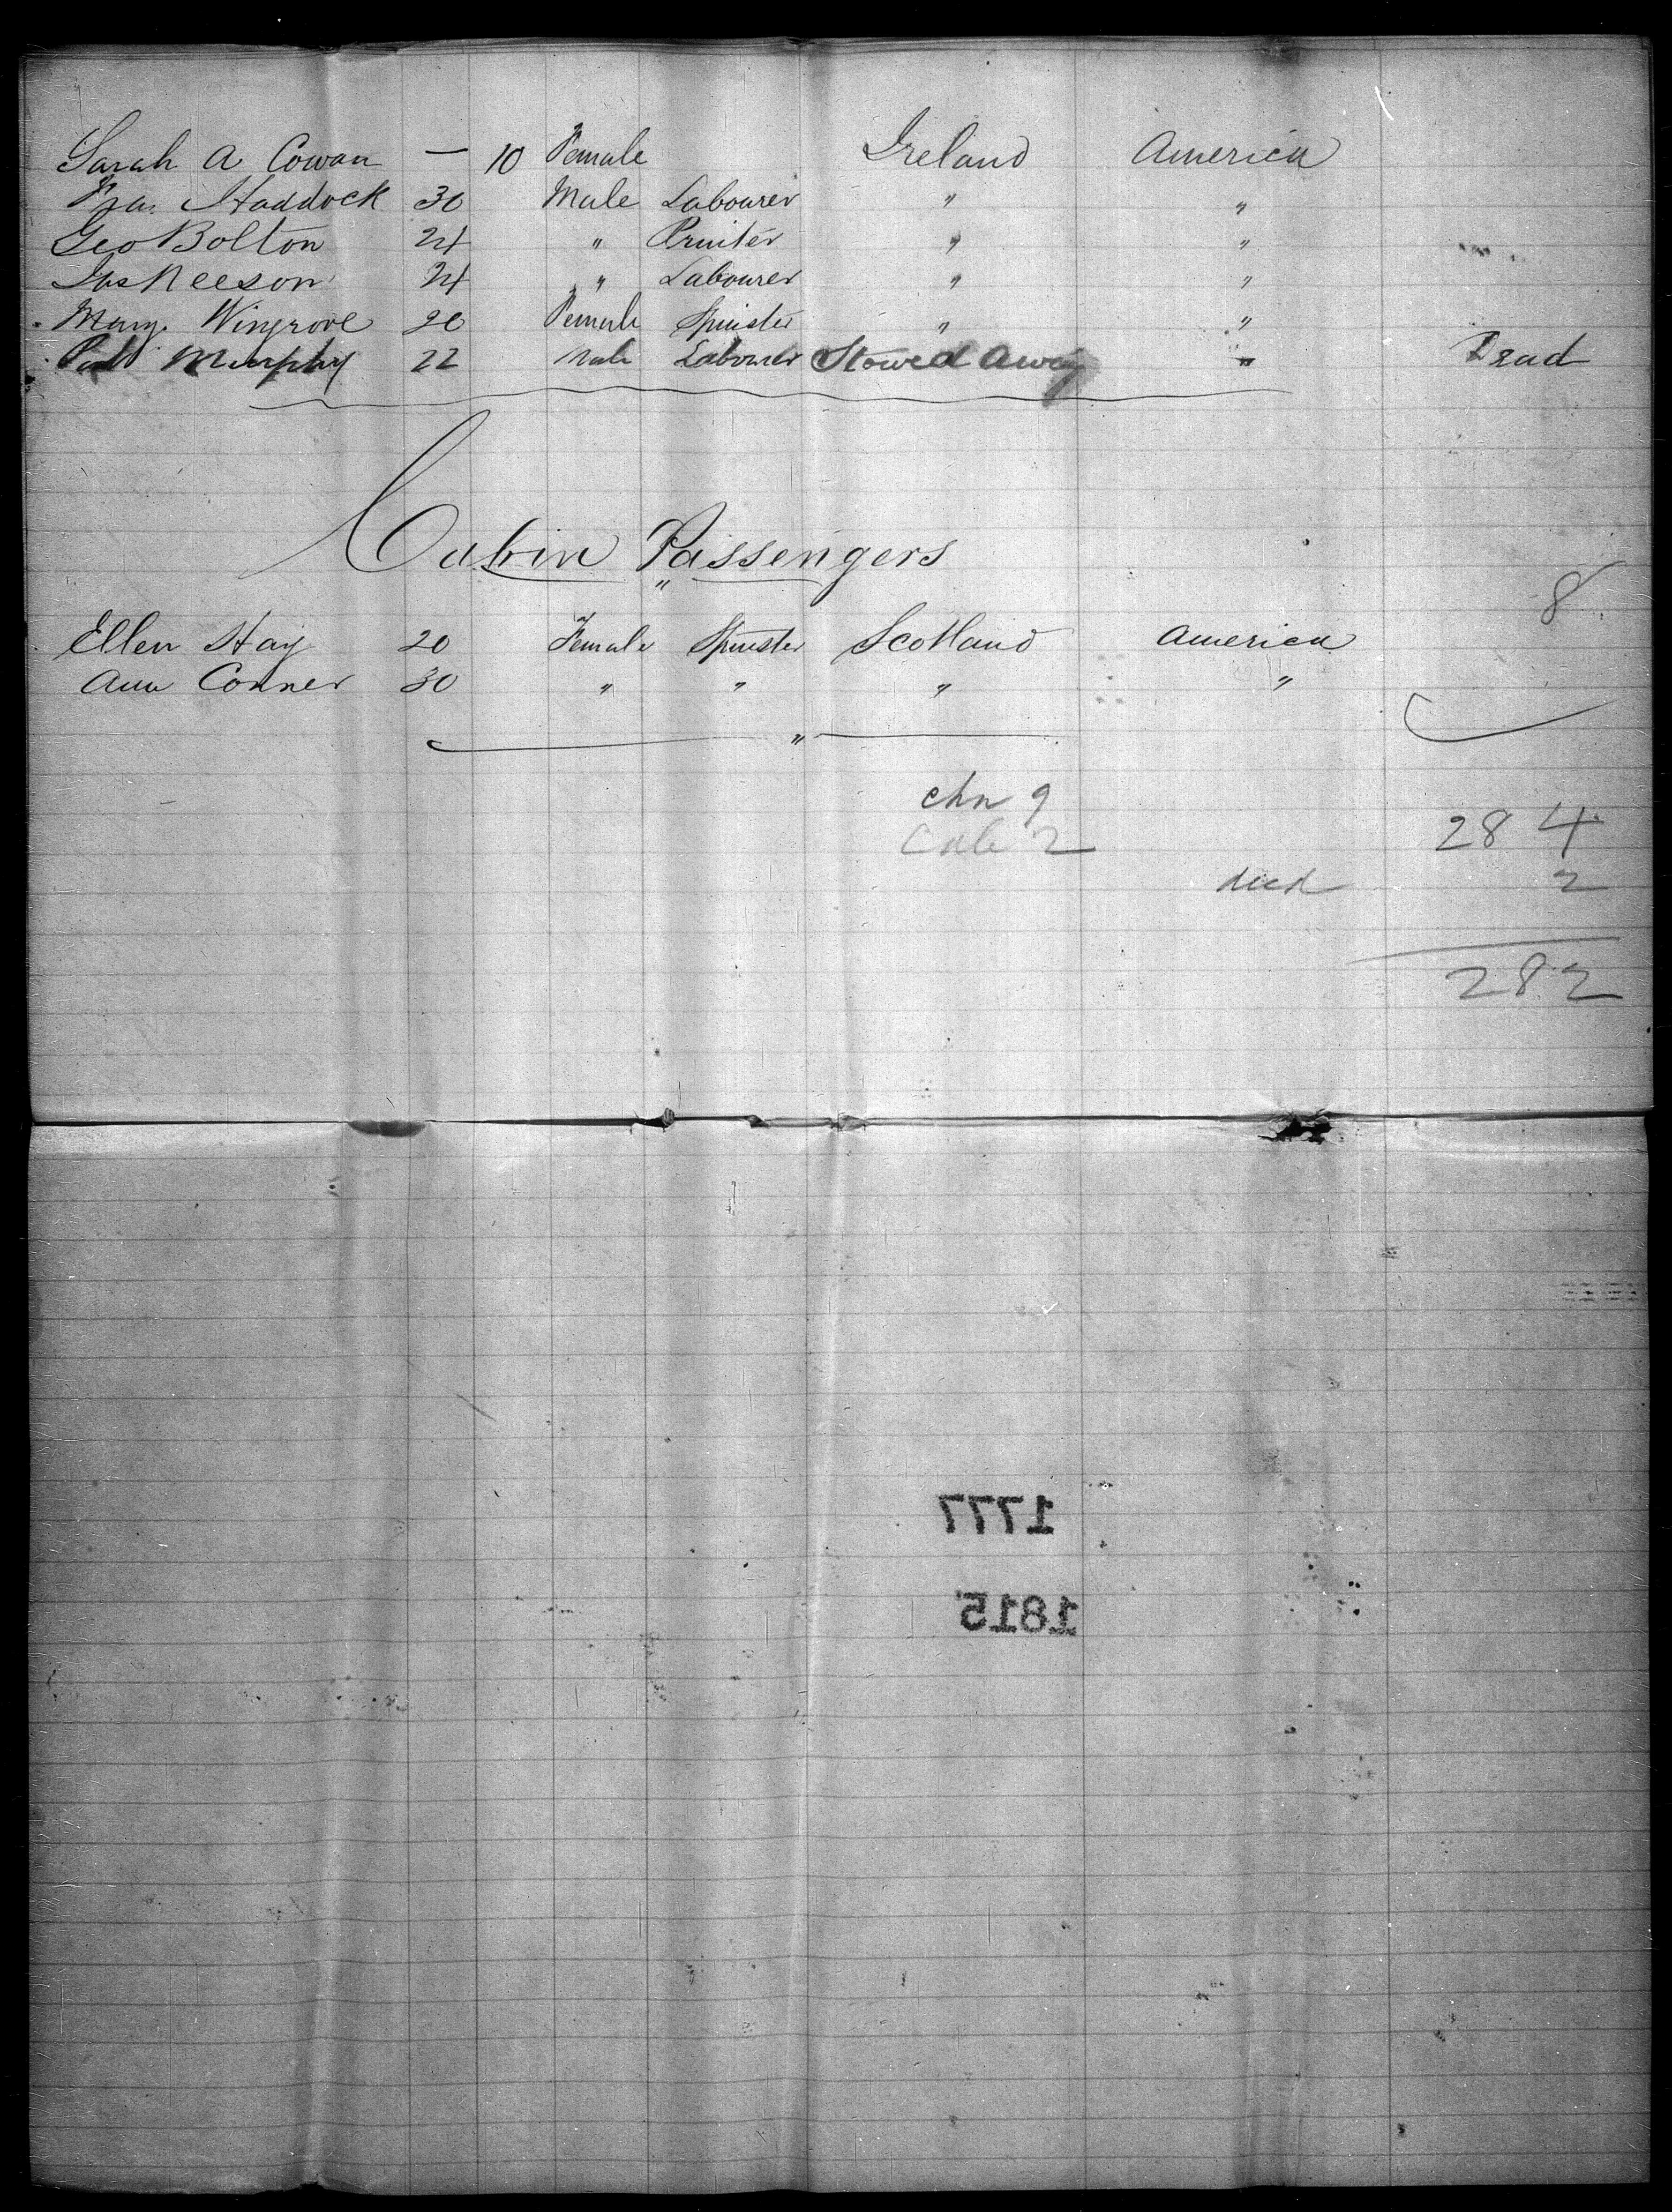 Sarah A Cowan — 10 Female Ireland America
Fra. Haddock 30 Male Labourer " "
Geo Bolton 24 " Printer " "
Jas Neeson 24 " Labourer " "
Mary Wingrove 20 Female Spinster " "
Murphy 22 Male Labourer Stowed Away " Dead
Cabin Passengers
"
8
Ellen Hay 20 Female Spinster Scotland America
Ann Conner 30 " " " "
"
chn 9
Cab 2
284
died 2
282
1777
1815